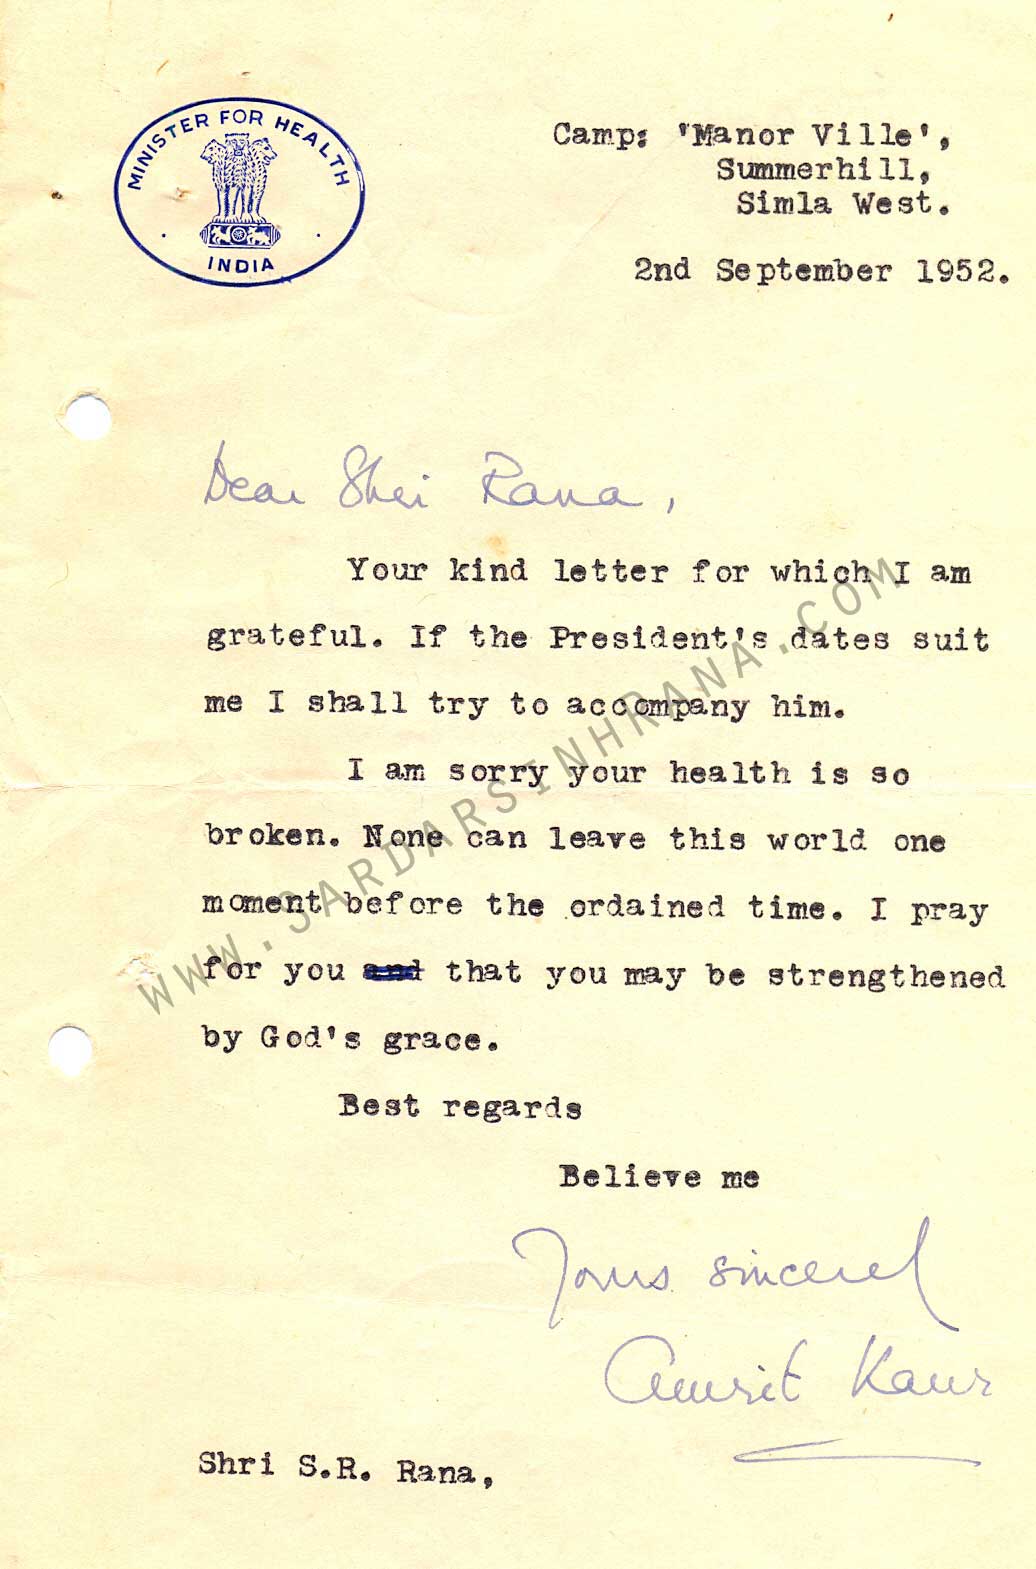 MINISTER FOR HEALTH
INDIA
Camp: 'Manor Ville',
Summerhill,
Simla West.
2nd September 1952.
Dear Shri Rana,
Your kind letter for which I am
grateful. If the President's dates suit
me I shall try to accompany him.
I am sorry your health is so
broken. None can leave this world one
moment before the ordained time. I pray
for you and that you may be strengthened
by God's grace.
Best regards
Believe me
Yours sincerely
Amrit Kaur
Shri S.R. Rana,
WWW.SARDARSINHRANA.COM